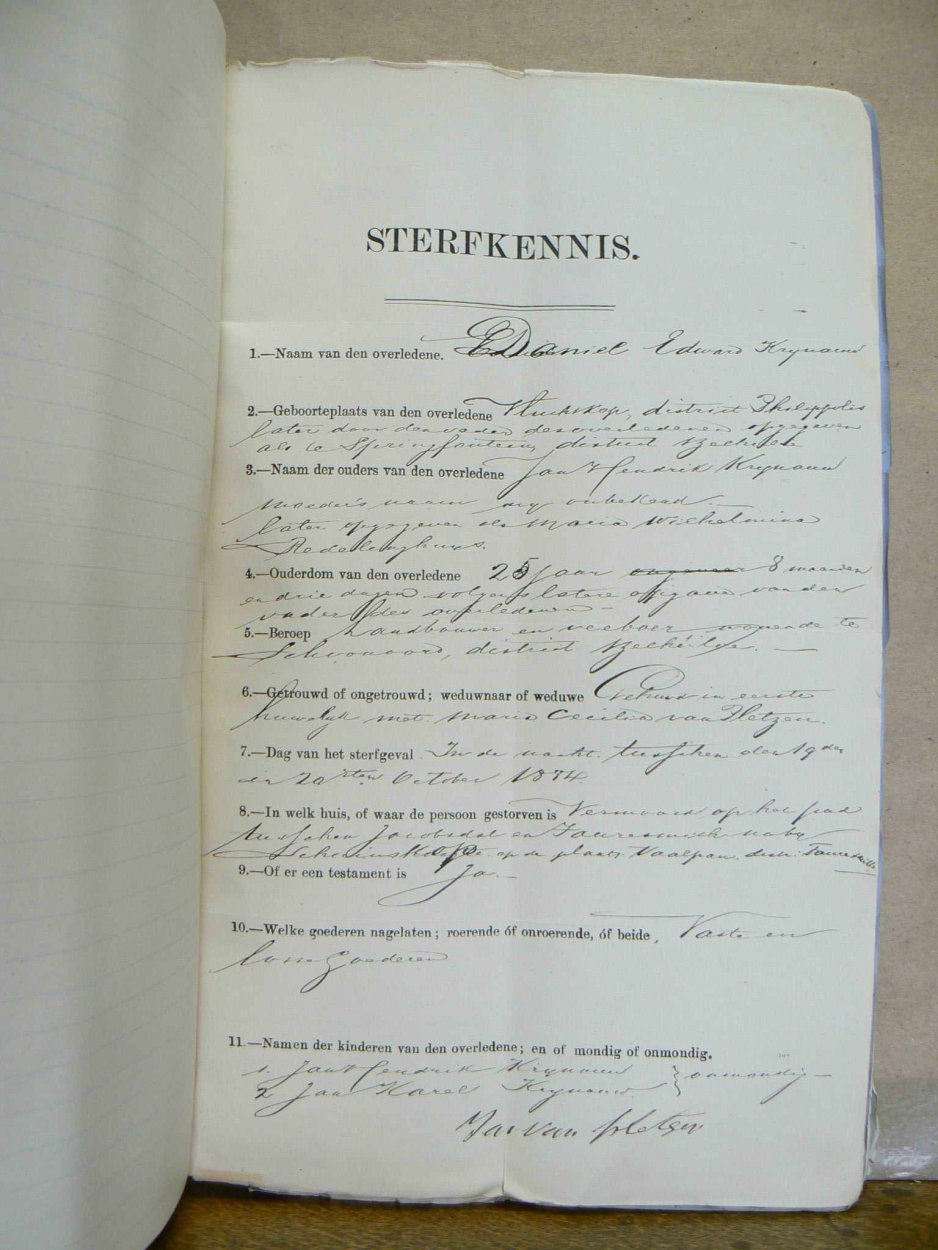 STERFKENNIS.
1.—Naam van den overledene. Daniel Edward Krynauw
2.—Geboorteplaats van den overledene district Philippolis
later door den vader des overledenen opgegeven
als te Springfontein, district
3.—Naam der ouders van den overledene Jan Hendrik Krynauw
moeders naam my onbekend
later opgegeven als Maria Wilhelmina
Redelinghuys.
4.—Ouderdom van den overledene 25 jaar 8 maanden
en drie dagen volgens latere opgave van den
vader des overledenen —
5.—Beroep Landbouwer en veeboer, wonende te
Schoonoord, district
6.—Getrouwd of ongetrouwd; weduwnaar of weduwe Gehuwd in eerste
huwelyk met Maria Cecilia van Pletzen.
7.—Dag van het sterfgeval In de nacht tusschen den 19den
en 20sten October 1874
8.—In welk huis, of waar de persoon gestorven is Vermoord op het pad
tusschen Jacobsdal en Fauresmith naby
op de plaats Vaalpan, distr. Fauresmith
9.—Of er een testament is Ja.—
10.—Welke goederen nagelaten; roerende óf onroerende, óf beide, Vaste en
losse goederen
11.—Namen der kinderen van den overledene; en of mondig of onmondig.
1. Jan Hendrik Krynauw } onmondig —
2 Jan Karel Krynauw
Jas van Pletzen